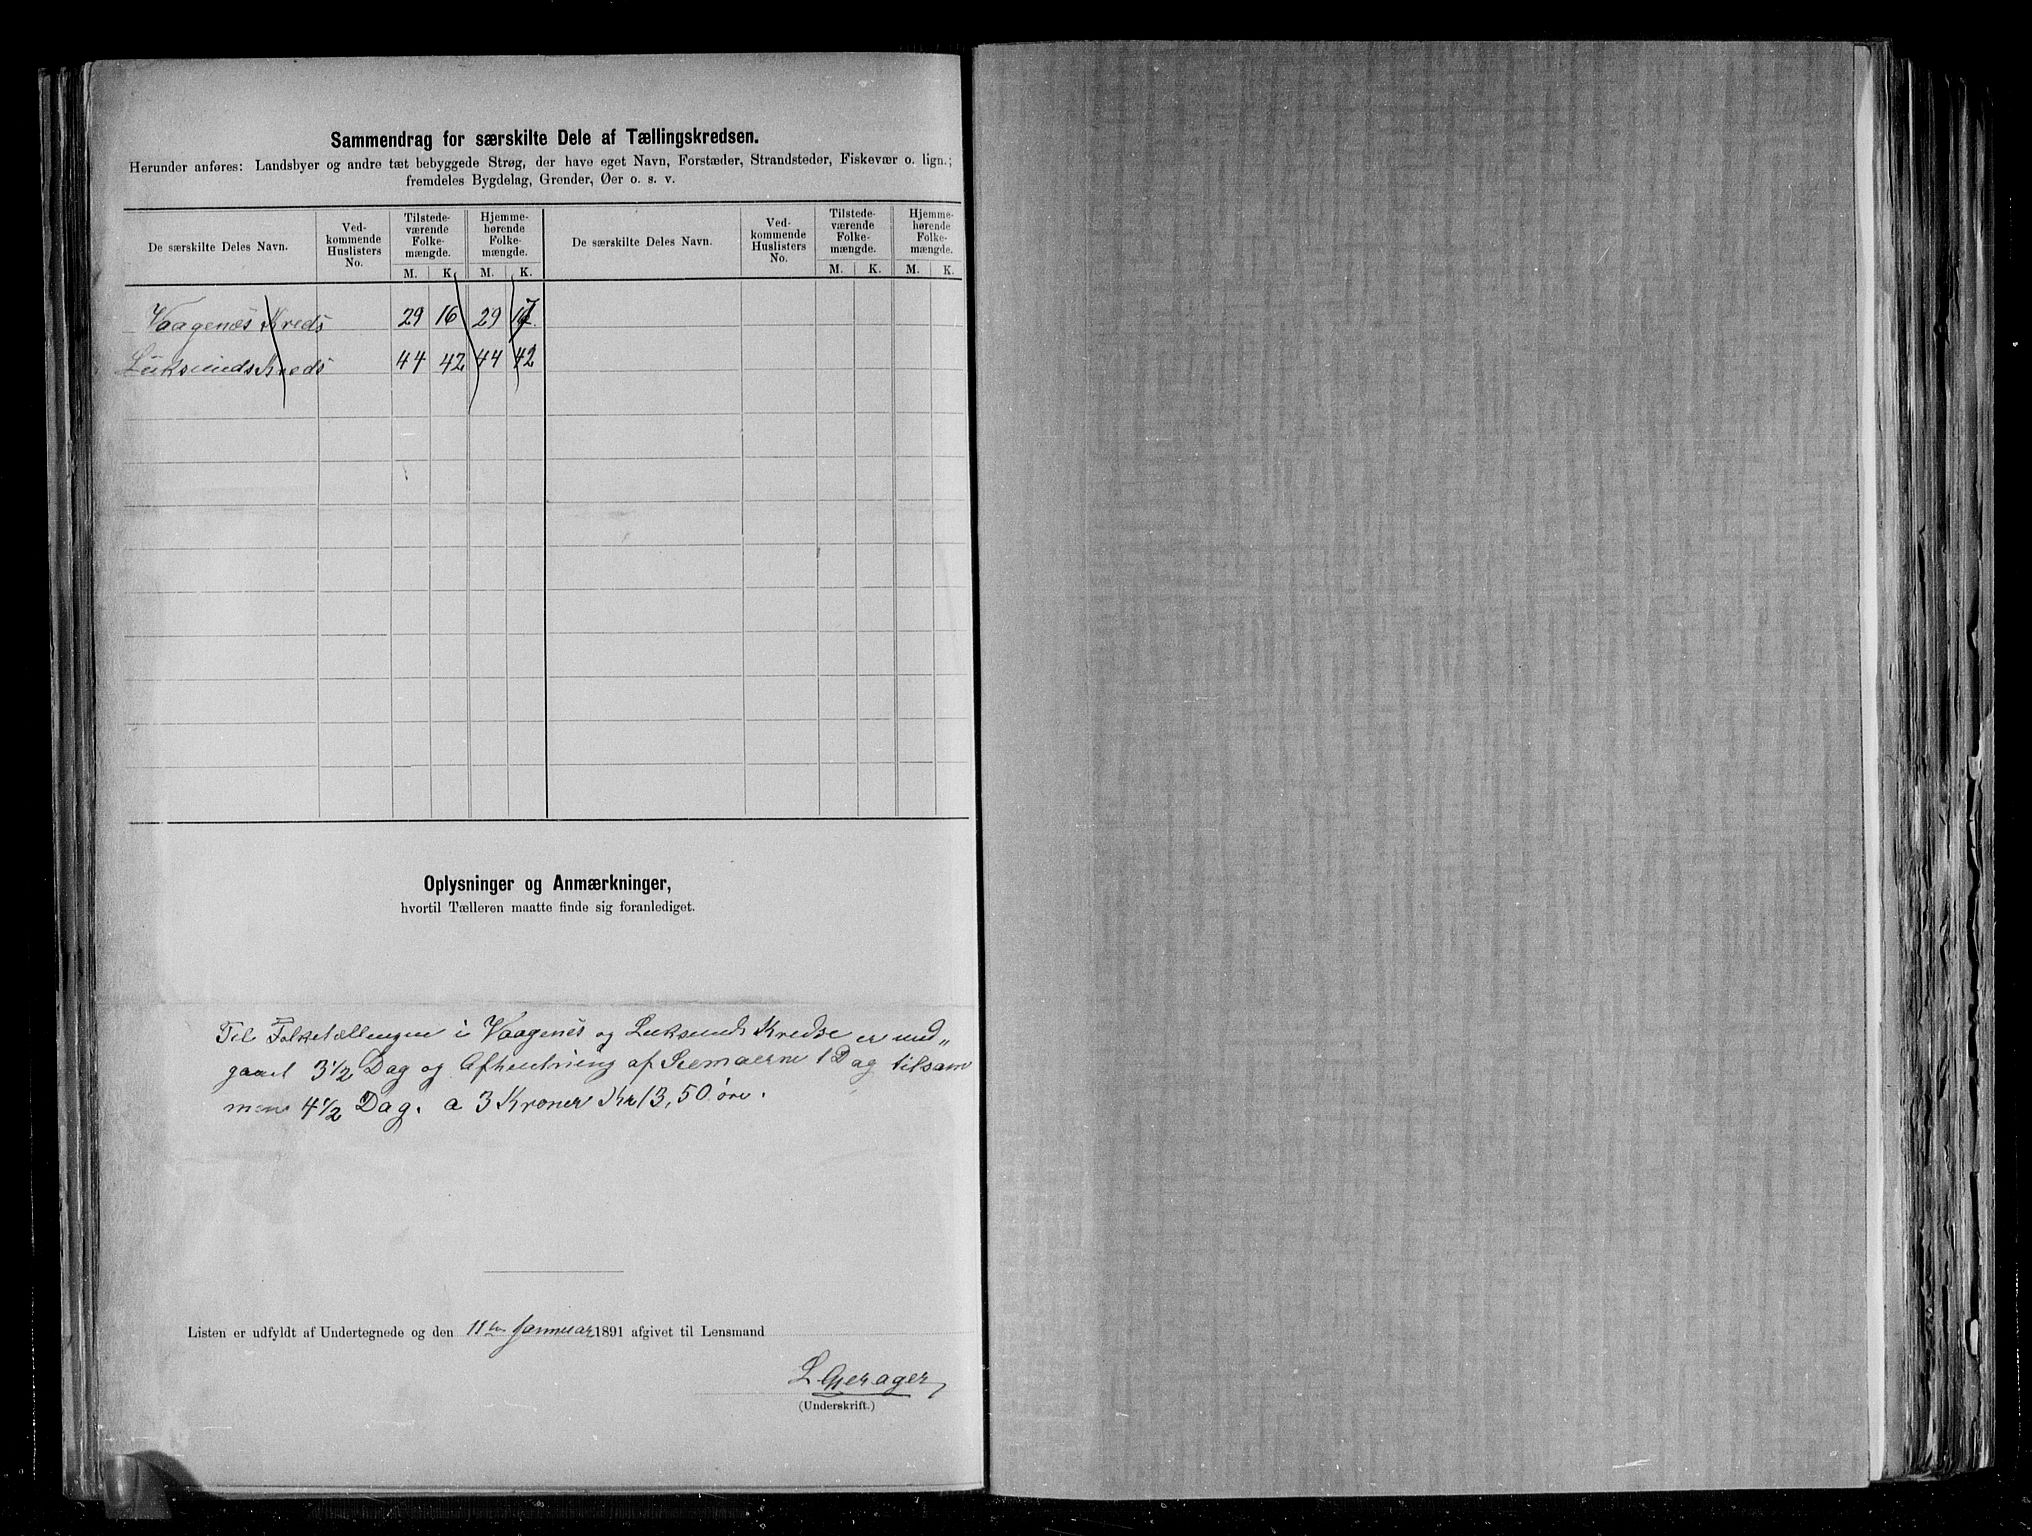 Sammendrag for særskilte Dele af Tællingskredsen.
Herunder anføres: Landsbyer og andre tæt bebyggede Strøg, der have eget Navn, Forstæder, Strandsteder, Fiskevær o. lign.;
fremdeles Bygdelag, Grender, Øer o. s. v.
De særskilte Deles Navn. Ved- kommende Huslisters No. Tilstede- værende Folke- mængde. Hjemme- hørende Folke- mængde. De særskilte Deles Navn. Ved- kommende Huslisters No. Tilstede- værende Folke- mængde. Hjemme- hørende Folke- mængde.
M. K. M. K. M. K. M. K.
Vaagenæs Kreds 29 16 29
Luksunds Kreds 44 42 44 42
Oplysninger og Anmærkninger,
hvortil Tælleren maatte finde sig foranlediget.
Til Folketællingen i Vaagenes og Luksunds Kredse er med„
gaaet 3½ Dag og Afhentning af Skemaerne 1 Dag tilsam
men 4½ Dag. a 3 Kroner Kr 13,50 øre.
Listen er udfyldt af Undertegnede og den 11te Januar 1891 afgivet til Lensmand
L Gjerager
(Underskrift.)